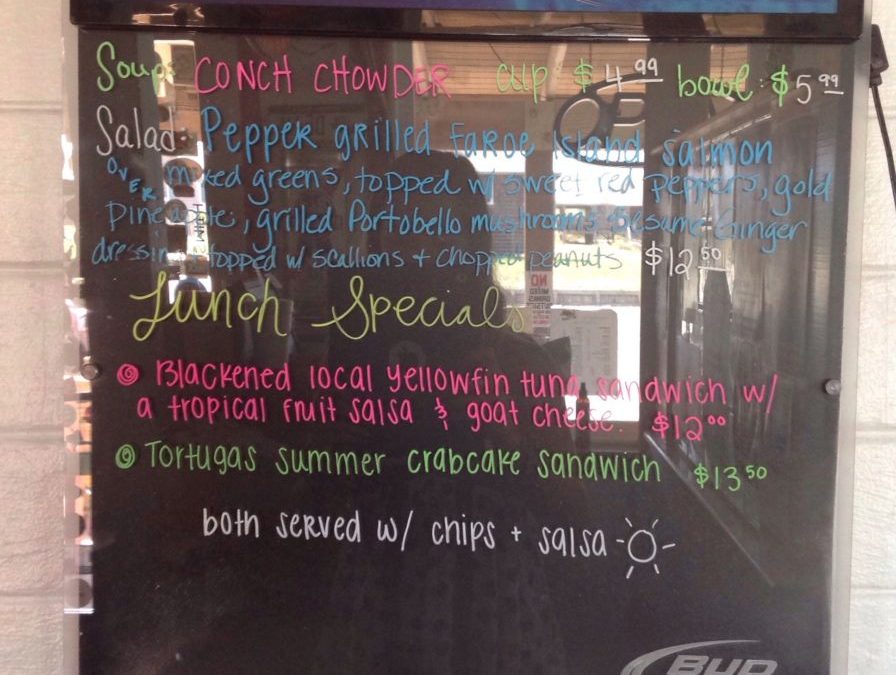 Soup: CONCH CHOWDER cup $4.99 bowl: $5.99
Salad: Pepper grilled Faroe Island Salmon
OVER mixed greens, topped w/ sweet red peppers, gold
pineapple, grilled Portobello mushrooms Sesame Ginger
dressing + topped w/ scallions + chopped peanuts $12.50
Lunch Specials
Blackened local yellowfin tuna sandwich w/
a tropical fruit salsa & goat cheese. $12.00
Tortugas summer crabcake sandwich $13.50
both served w/ chips + salsa
BUD